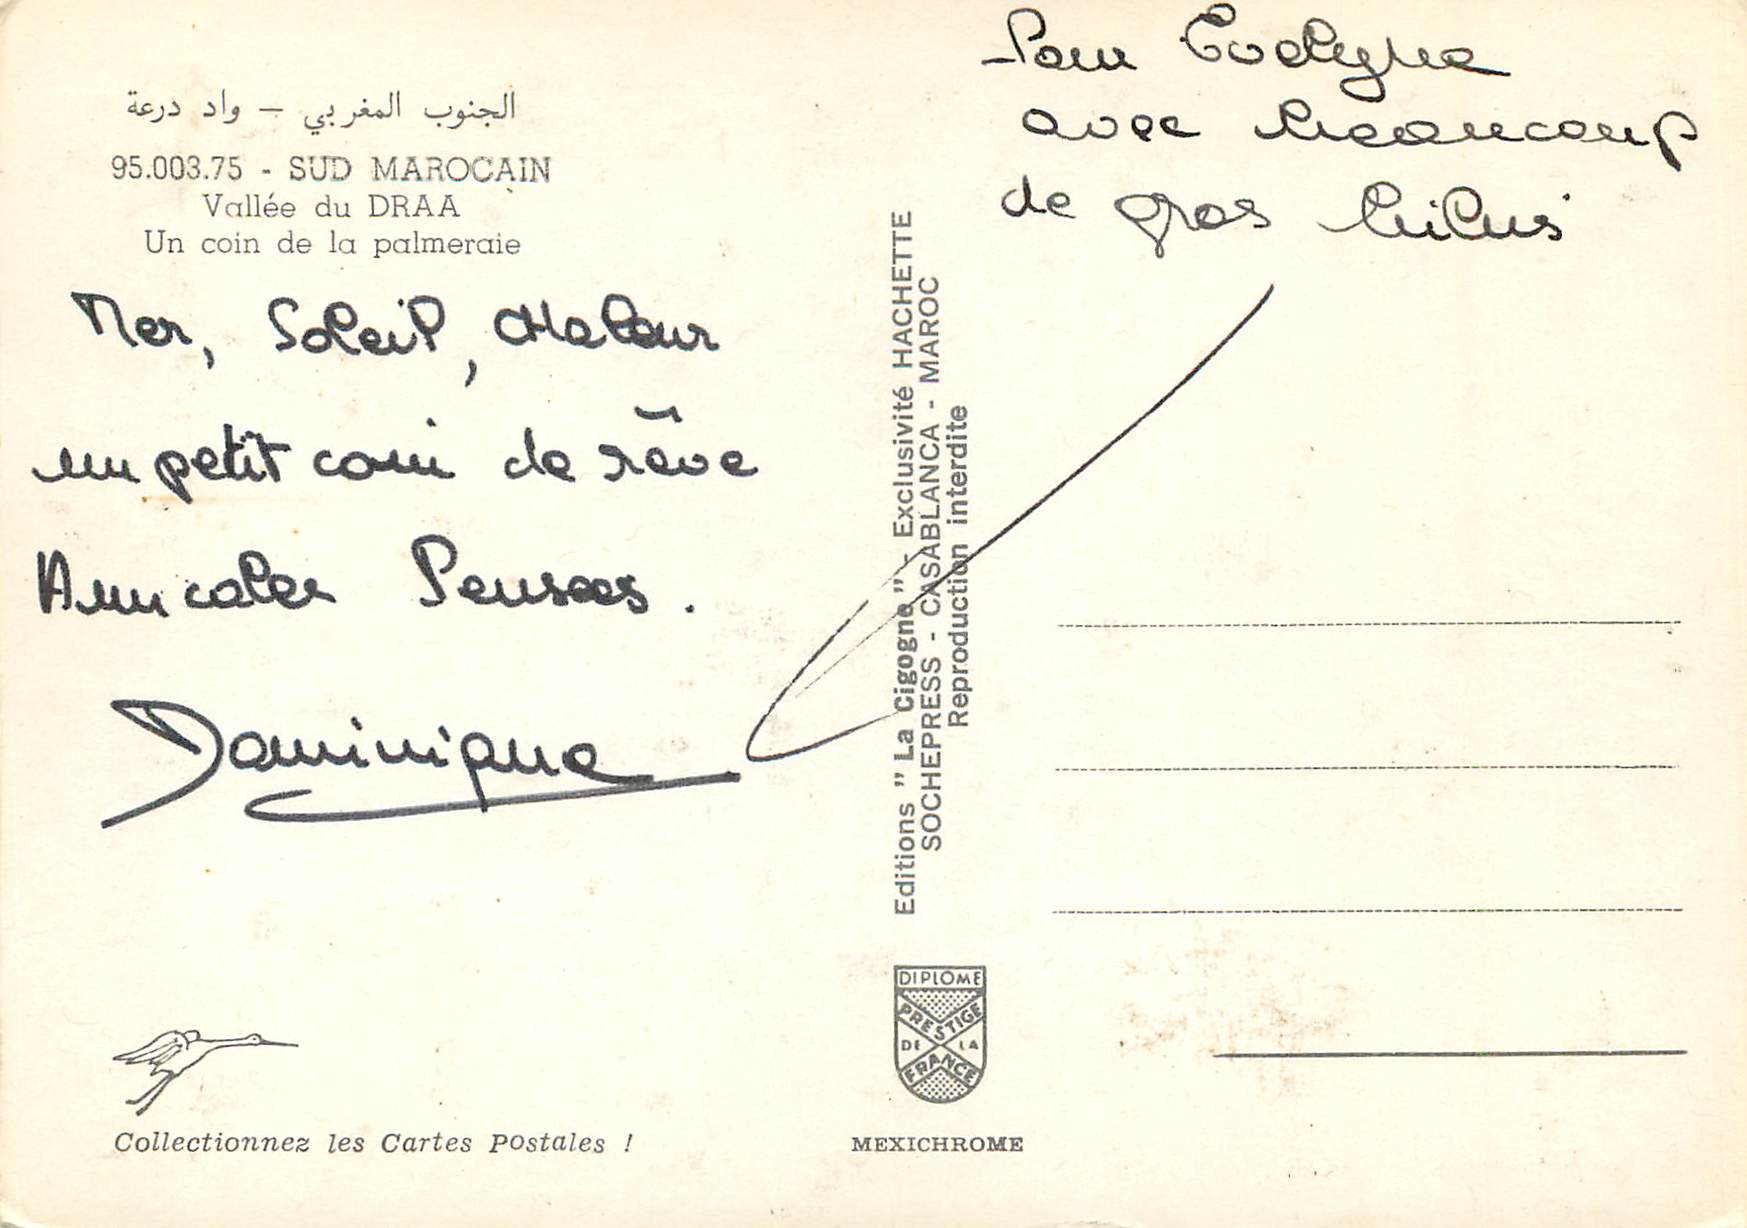 الجنوب المغربي – واد درعة
95.003.75 - SUD MAROCAIN
Vallée du DRAA
Un coin de la palmeraie
Mer, Soleil, Chaleur
un petit coin de rêve
Amicales Pensees.
Dominique
Pour Evelyne
avec beaucoup
de gros bibus
Editions "La Cigogne" - Exclusivité HACHETTE
SOCHEPRESS - CASABLANCA - MAROC
Reproduction interdite
DIPLOME
PRESTIGE
DE LA
FRANCE
Collectionnez les Cartes Postales !
MEXICHROME